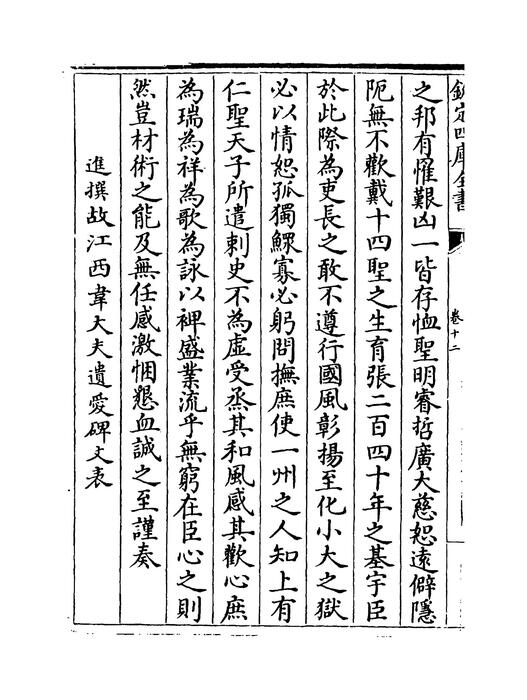 欽定四庫全書
卷十二
之邦有罹艱凶一皆存恤聖明睿哲廣大慈恕遠僻隱
阨無不歡戴十四聖之生育張二百四十年之基宇臣
於此際為吏長之敢不遵行國風彰揚至化小大之獄
必以情恕孤獨鰥寡必躬問撫庶使一州之人知上有
仁聖天子所遣刺史不為虛受烝其和風感其歡心庶
為瑞為祥為歌為詠以裨盛業流乎無窮在臣心之則
然豈材術之能及無任感激悃懇血誠之至謹奏
進撰故江西韋大夫遺愛碑文表